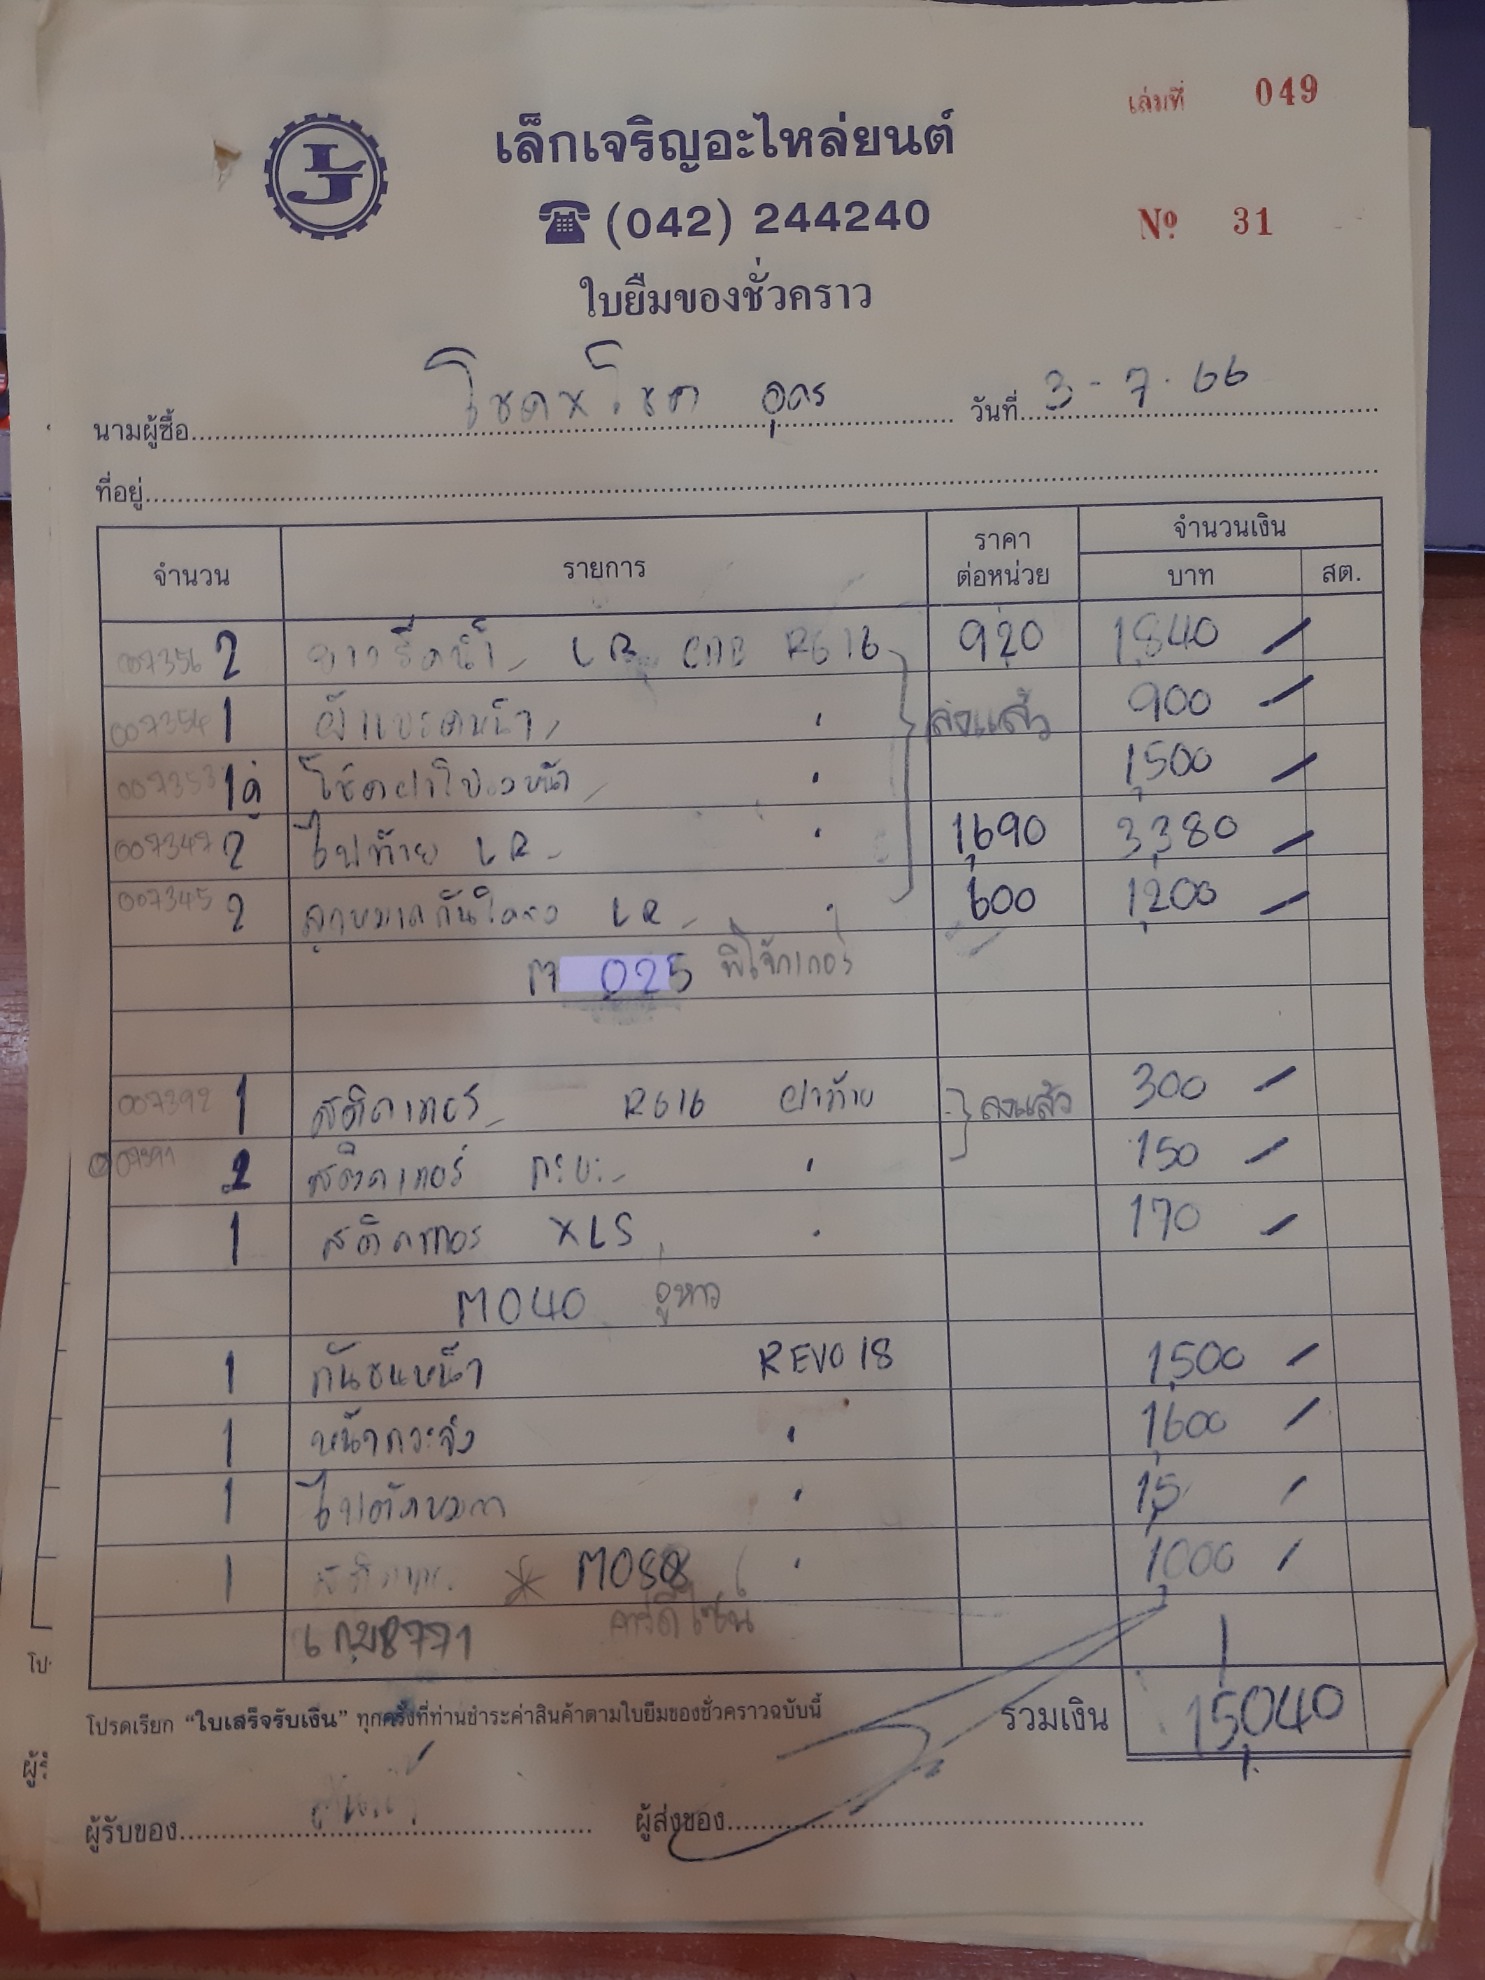 เล่มที่ 049
LJ
เล็กเจริญอะไหล่ยนต์
☎ (042) 244240
Nº 31
ใบยืมของชั่วคราว
นามผู้ซื้อ โชคxโชค อุดร วันที่ 3-7-66
ที่อยู่
จำนวน รายการ ราคาต่อหน่วย จำนวนเงิน
บาท สต.
007356 2 ยางรีดน้ำ LR CAB R616 920 1,840 -
007354 1 ผ้าเบรคหน้า " ส่งแล้ว 900 -
007353 1คู่ โช้คฝาโปรงหน้า " 1,500 -
007347 2 ไฟท้าย LR " 1,690 3,380 -
007345 2 ลูกหมากกันโคลง LR " 600 1,200 -
M 025
007392 1 สติคเกอร์ R616 ฝาท้าย ลงแล้ว 300 -
2 สติคเกอร์ กะบะ " 150 -
1 สติคเกอร์ XLS " 170 -
M040
1 กันชนหน้า REVO 18 1,500 -
1 หน้ากระจัง " 1,600 -
1 ไฟตัดหมอก " 15 -
1 M058 " 1,000 -
8771
โปรดเรียก “ใบเสร็จรับเงิน” ทุกครั้งที่ท่านชำระค่าสินค้าตามใบยืมของชั่วคราวฉบับนี้
รวมเงิน 15,040
ผู้รับของ ผู้ส่งของ